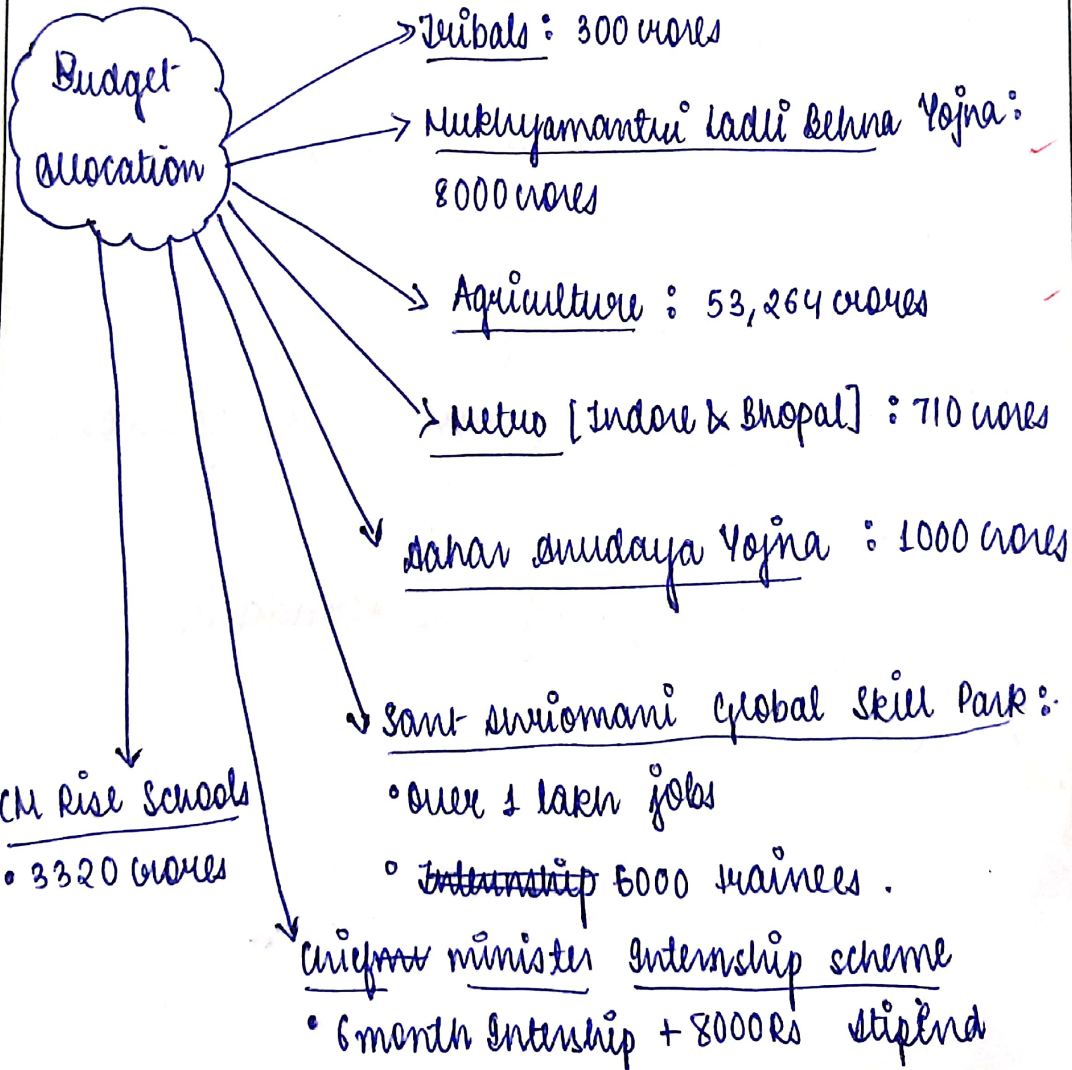 Budget
allocation
Tribals : 300 crores
Mukhyamantri Ladli Behna Yojna :
8000 crores
Agriculture : 53,264 crores
Metro [Indore & Bhopal] : 710 crores
Aahar Anudaya Yojna : 1000 crores
Sant Shriomani Global Skill Park :
• Over 1 lakh jobs
• Internship 6000 trainees.
CM Rise Schools
• 3320 crores
Chief minister Internship scheme
• 6 month Intership + 8000 Rs Stipend